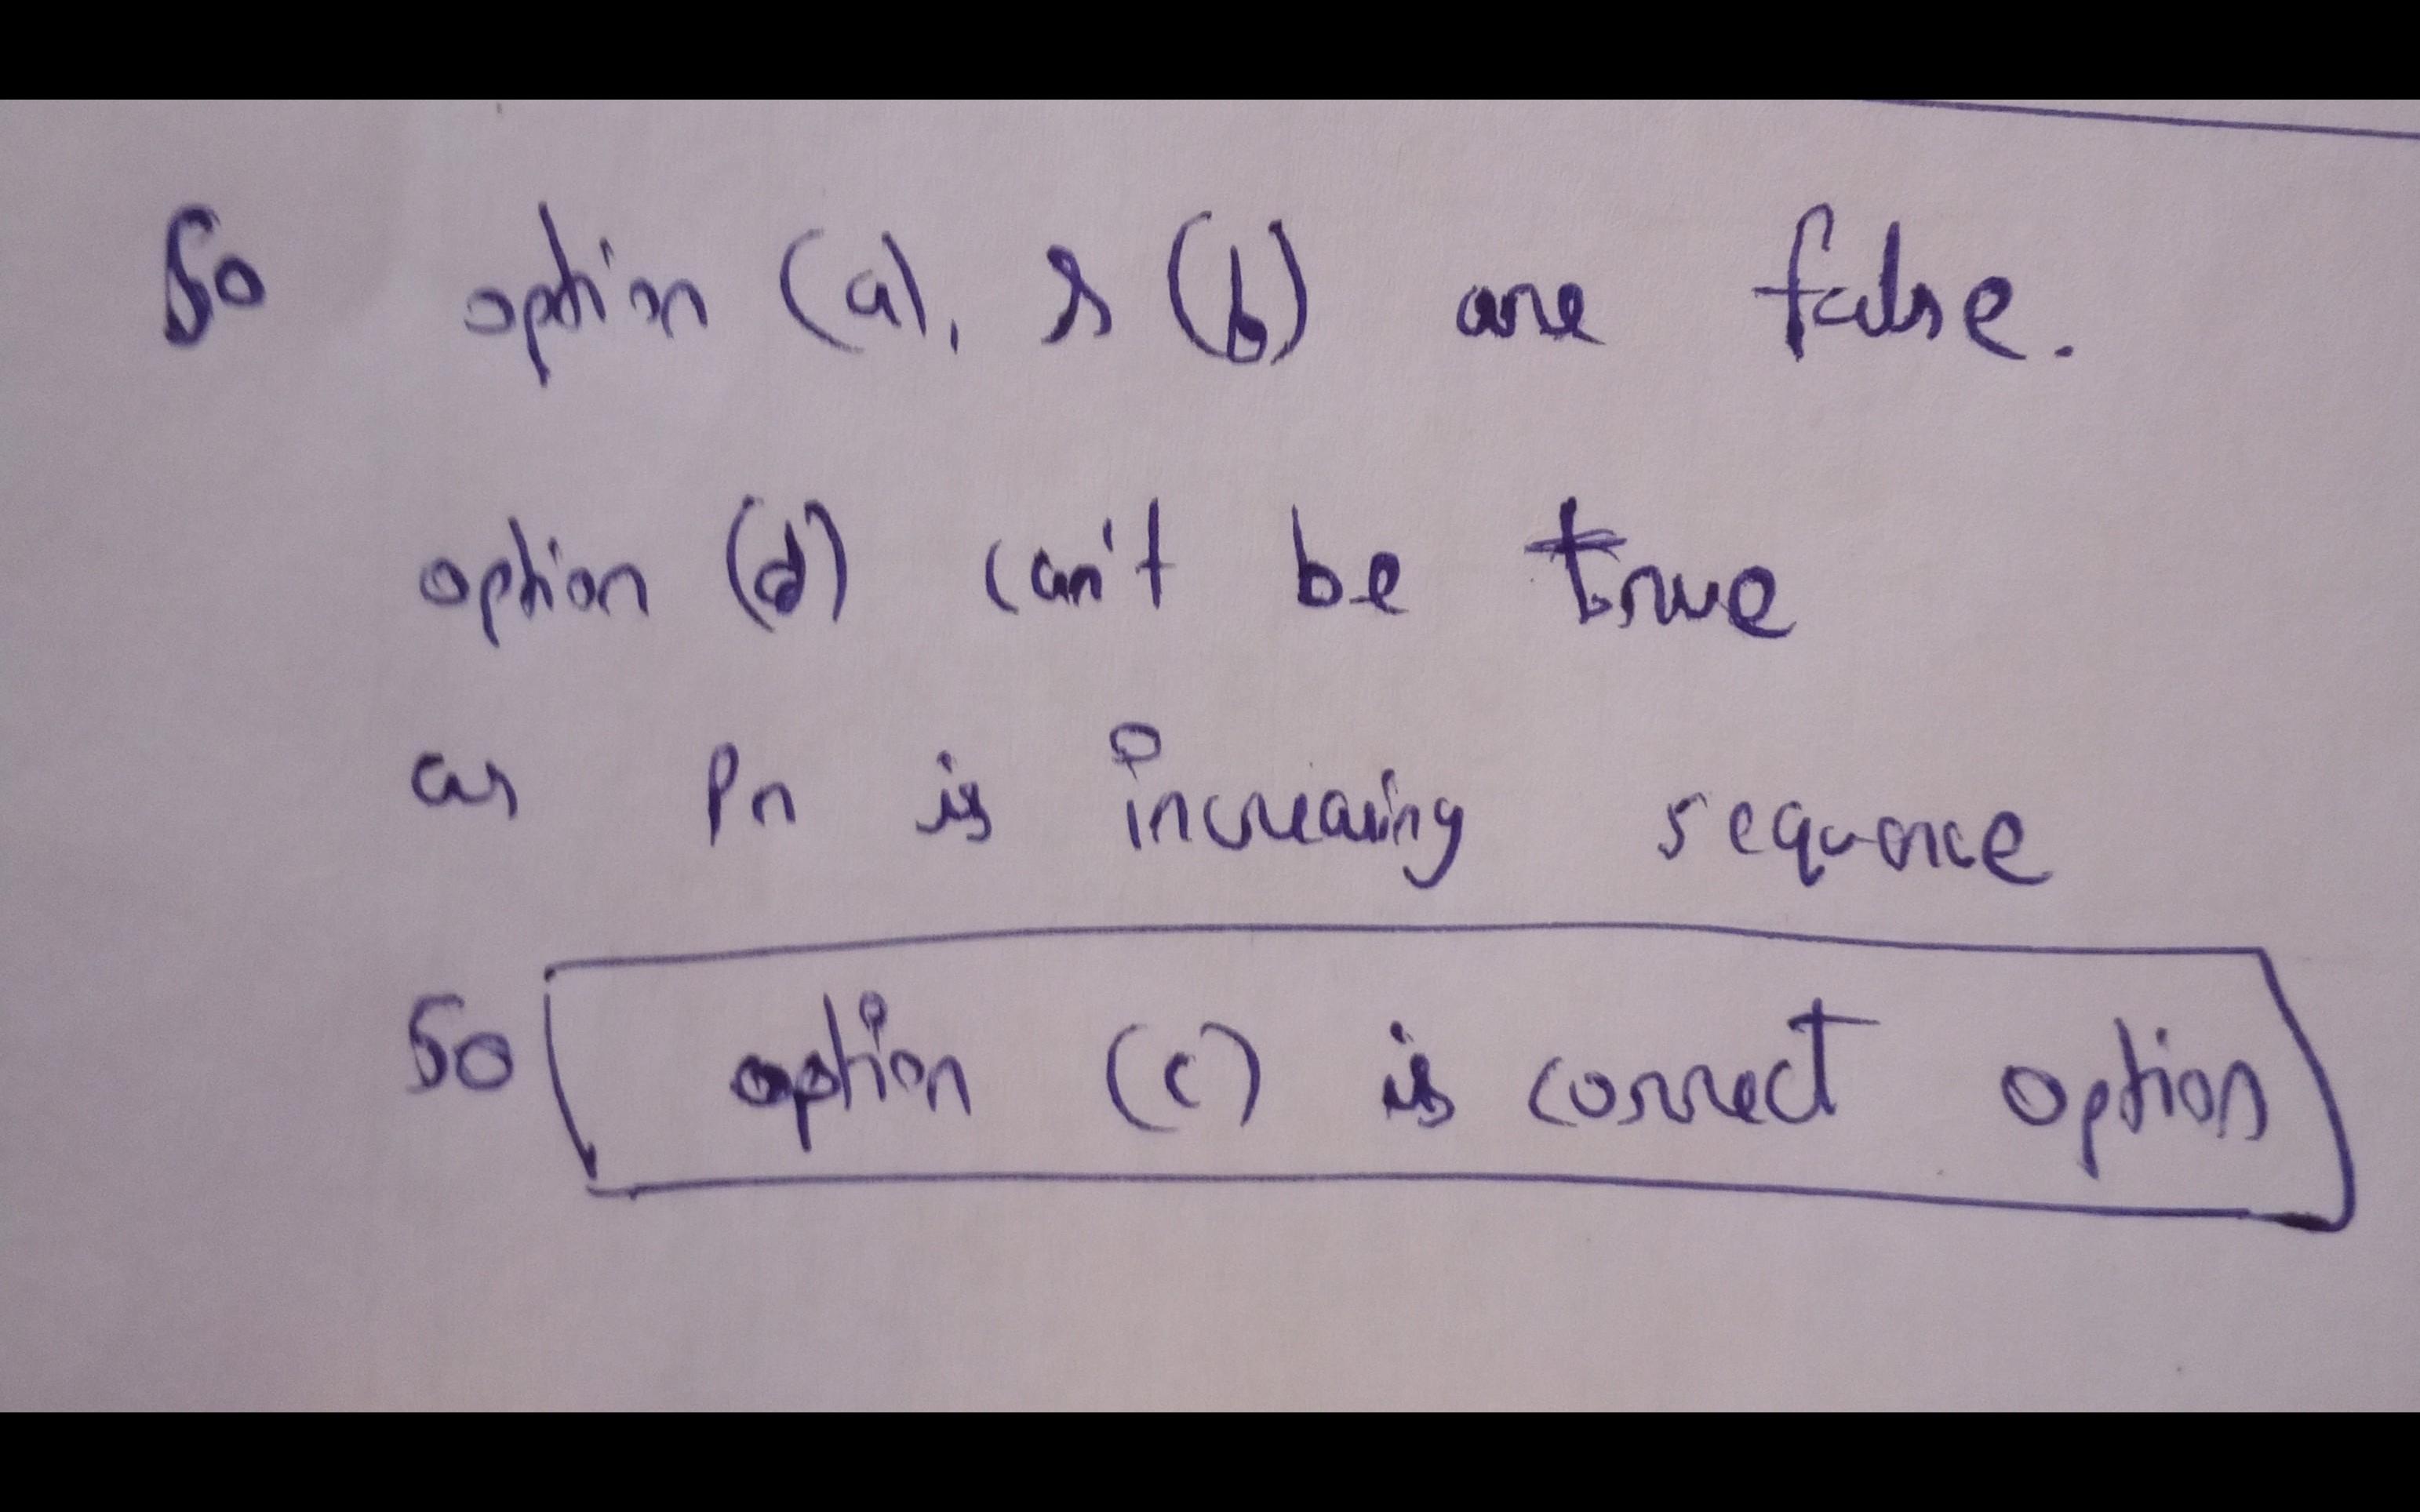 So option (a), & (b) are false.
option (d) can't be true
as Pn is increasing sequence
So option (c) is correct option